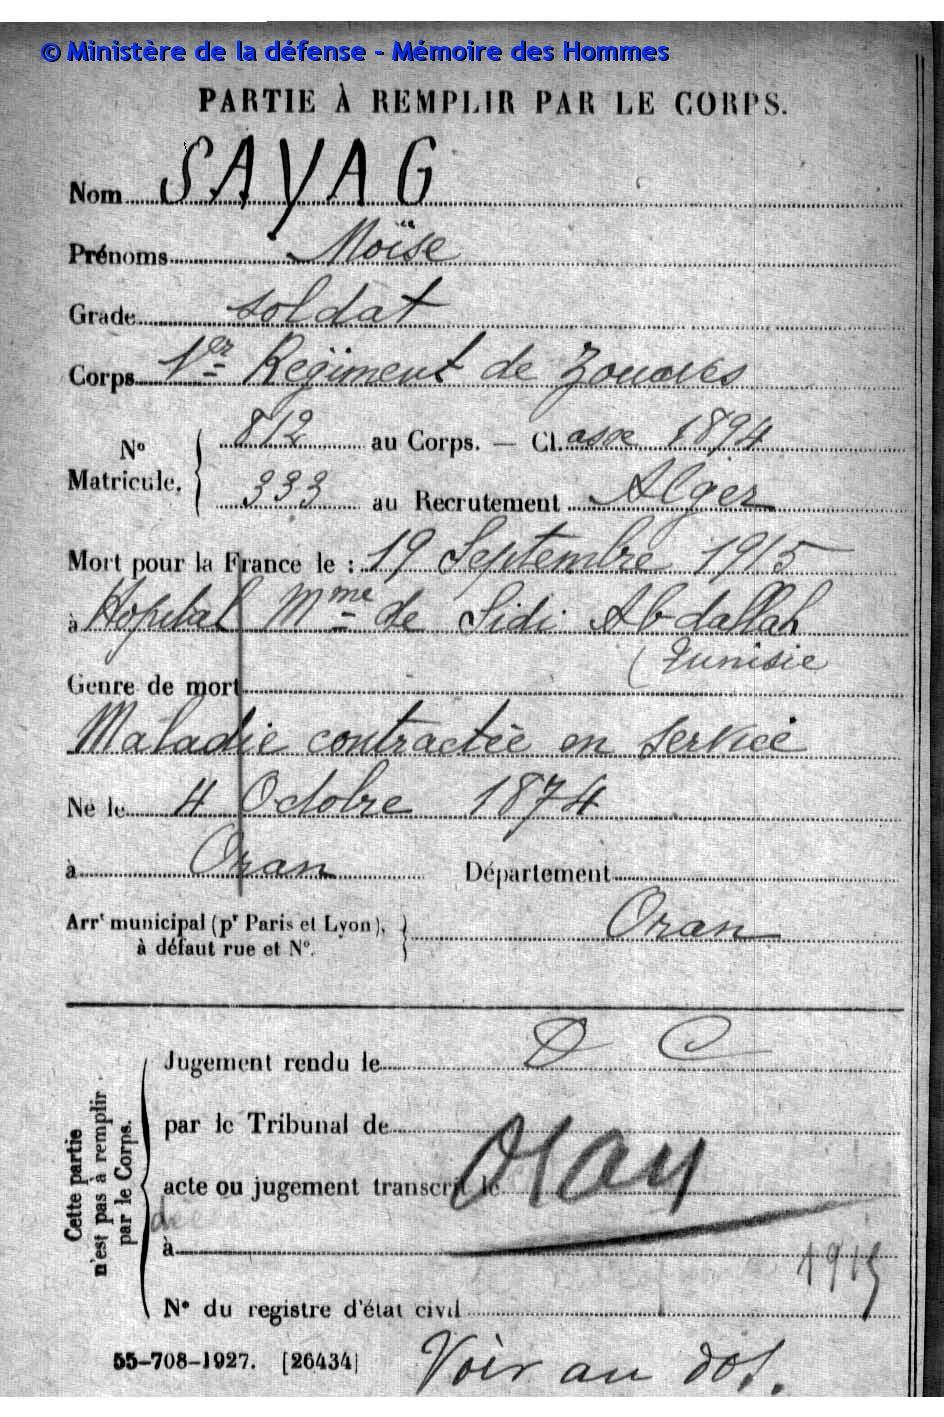 © Ministère de la défense - Mémoire des Hommes
PARTIE À REMPLIR PAR LE CORPS.
Nom SAYAG
Prénoms Moïse
Grade soldat
Corps 1er Régiment de Zouaves
No Matricule. 812 au Corps. — Classe 1894
333 au Recrutement Alger
Mort pour la France le : 19 Septembre 1915
à Hopital Mme de Sidi Abdallah
(Tunisie
Genre de mort
Maladie contractée en service
Né le 4 Octobre 1874
à Oran Département
Arrt municipal (pr Paris et Lyon), à défaut rue et N°. Oran
Cette partie n'est pas à remplir par le Corps.
Jugement rendu le D C
par le Tribunal de
acte ou jugement transcrit le Oran
à
1915
N° du registre d'état civil
55-708-1927. [26434]
Voir au dos.